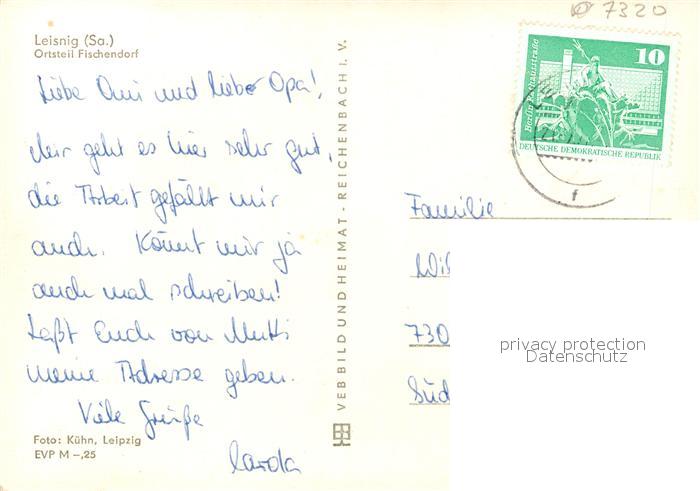 7320
Leisnig (Sa.)
Ortsteil Fischendorf
Liebe Omi und lieber Opa!
Mir geht es hier sehr gut,
die Arbeit gefällt mir
auch. Könnt mir ja
auch mal schreiben!
Laßt Euch von Mutti
meine Adresse geben.
Viele Grüße
Carola
Foto: Kühn, Leipzig
EVP M –,25
VEB BILD UND HEIMAT · REICHENBACH I. V.
10
DEUTSCHE DEMOKRATISCHE REPUBLIK
f
Familie
730
Süd
privacy protection
Datenschutz